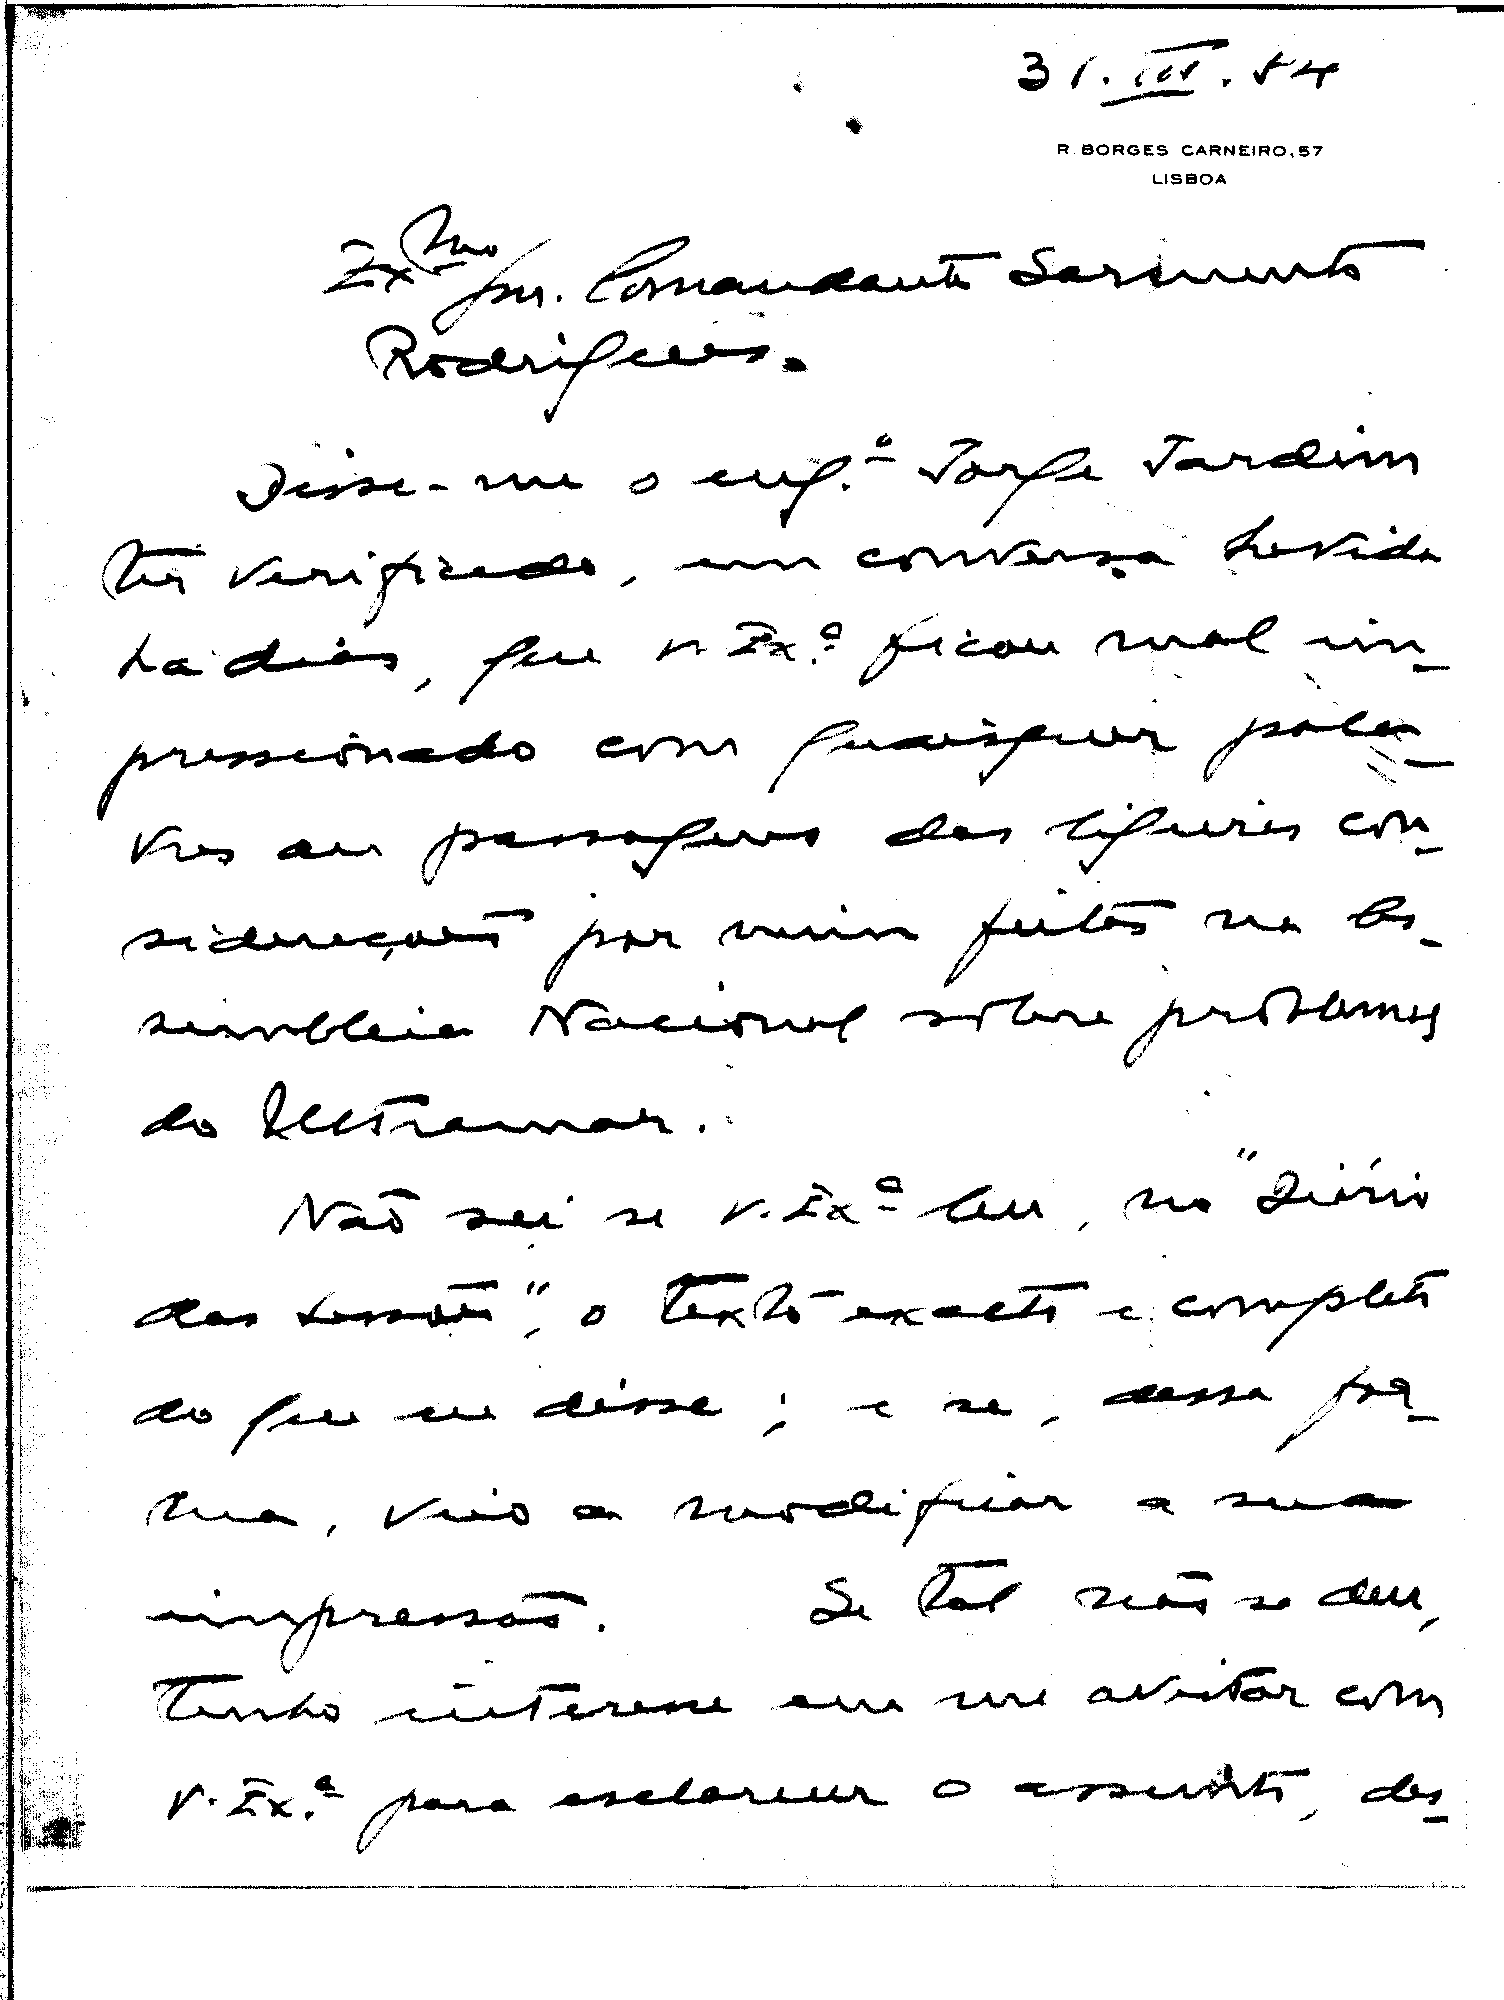 31.III.54
R. BORGES CARNEIRO, 57
LISBOA
Exmo Snr. Comandante Sarmento
Rodrigues.
Disse-me o eng.º Jorge Jardim
ter verificado, em conversa havida
há dias, que V. Ex.ª ficou mal im-
pressionado com quaisquer pala-
vras ou passagens das ligeiras con-
siderações por mim feitas na As-
sembleia Nacional sobre problemas
do Ultramar.
Não sei se V. Ex.ª leu, no "Diário
das Sessões", o texto exacto e completo
do que eu disse; e se, dessa for-
ma, veio a modificar a sua
impressão. Se tal não se deu,
tenho interesse em me avistar com
V. Ex.ª para esclarecer o assunto, des-